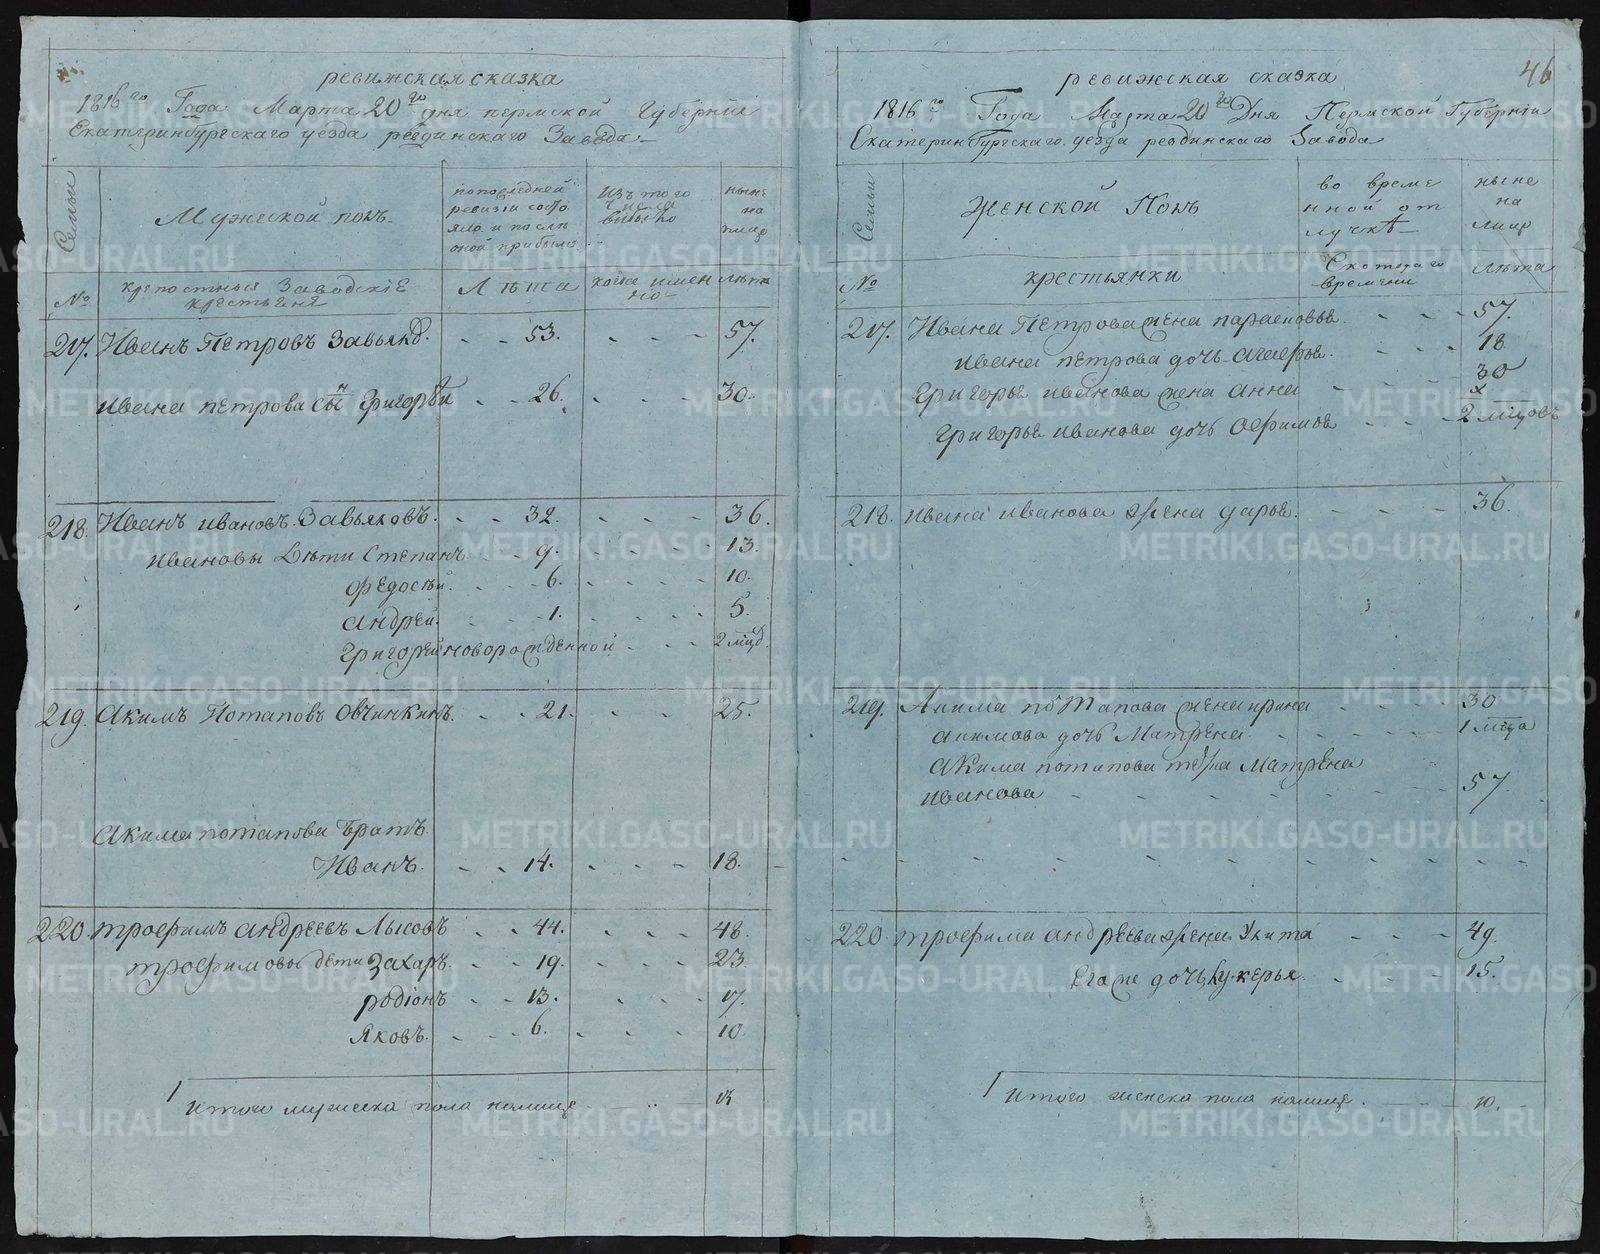 ревижская сказка
1816го Года Марта 20го дня пермской Губерніи
Екатеринбургскаго уезда ревдинскаго Завода
Семьи
Мужеской полъ
по последней
ревизіи состо
яло и посль
оной прибыло
Изъ того
числа
выбыло
ныне
на
лицо
№
крепостныя Заводскіе
крестьяне
Лѣта
когда имен
но
лѣта
217. Иванъ Петровъ Завьяло. 53. 57.
Ивана петрова сынъ Григорей 26. 30.
218. Иванъ ивановъ Завьяловъ. 32. 36.
Ивановы Дѣти Степанъ 9. 13.
Федосѣй. 6. 10.
Андрей. 1. 5.
Григорей новорожденной 2 мцд
219. Акимъ Потаповъ Овчинкинъ. 21. 25.
Акима потапова братъ
Иванъ. 14. 18.
220. Трофимъ андреевъ Лысовъ 44. 48.
Трофимовы дети Захаръ 19. 23.
родіонъ 13. 17.
Яковъ. 6. 10.
Итого мужеска пола налицо 13
46
ревижская сказка
1816го Года Марта 20го Дня Пермской Губерніи
Екатеринбургскаго уезда ревдинскаго Завода
Семьи
Женской Полъ
во време
нной от
лучкѣ
ныне
на
лицо
№
крестьянки
Скотораго
времени
лѣта
217. Ивана Петрова жена парасковья 57.
Ивана петрова дочь 18
Григорья иванова жена Анна 30
Григорья иванова дочь Офимья 2 мцовъ
218. Ивана иванова жена дарья. 36.
219. Акима потапова жена ирина 30
акимова дочь Матрена 1 мца
Акима потапова Матрена
Иванова 57.
220. трофима андреева жена Улита 49.
Его же дочь Лукерья 15.
Итого женска пола налицо. 10.
METRIKI.GASO-URAL.RU